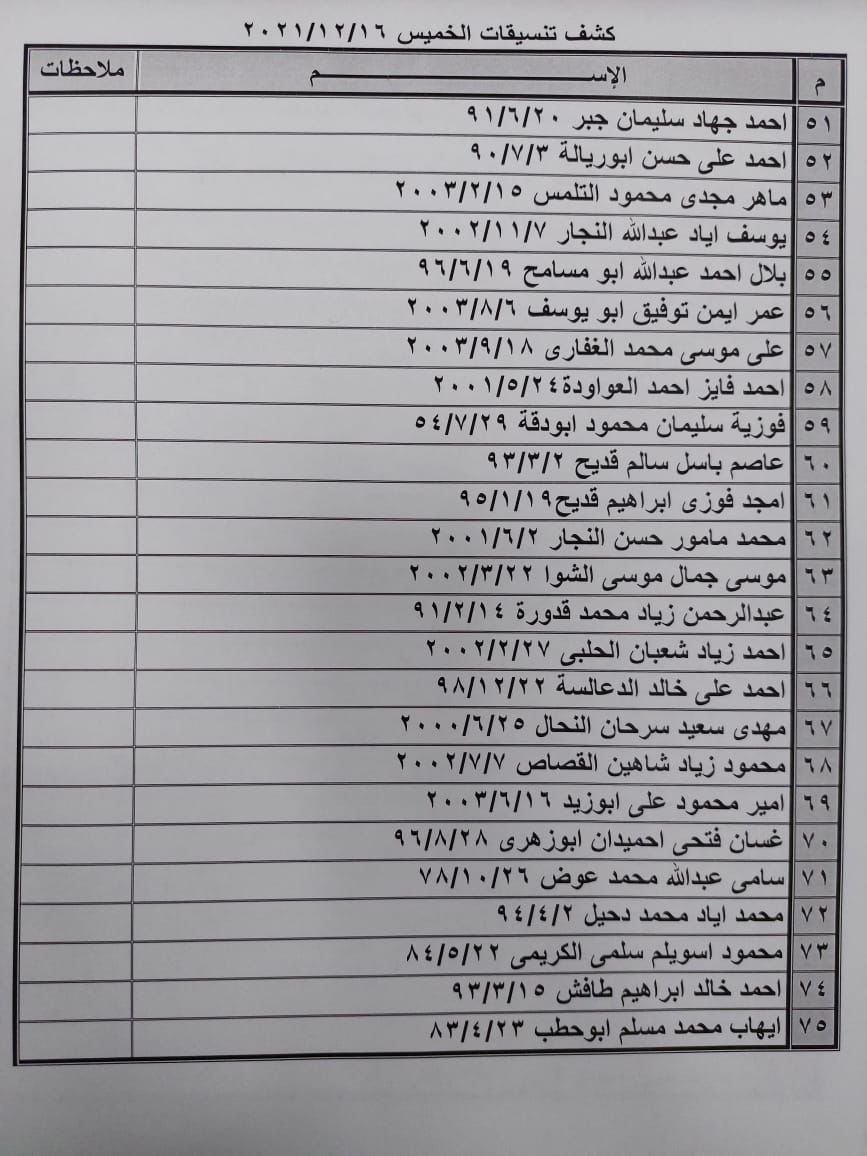 كشف تنسيقات الخميس ٢٠٢١/١٢/١٦
م الإســـــــــــــــم ملاحظات
٥١ احمد جهاد سليمان جبر ٩١/٦/٢٠
٥٢ احمد على حسن ابوريالة ٩٠/٧/٣
٥٣ ماهر مجدى محمود التلمس ٢٠٠٣/٢/١٥
٥٤ يوسف اياد عبدالله النجار ٢٠٠٢/١١/٧
٥٥ بلال احمد عبدالله ابو مسامح ٩٦/٦/١٩
٥٦ عمر ايمن توفيق ابو يوسف ٢٠٠٣/٨/٦
٥٧ على موسى محمد الغفارى ٢٠٠٣/٩/١٨
٥٨ احمد فايز احمد العواودة٢٠٠١/٥/٢٤
٥٩ فوزية سليمان محمود ابودقة ٥٤/٧/٢٩
٦٠ عاصم باسل سالم قديح ٩٣/٣/٢
٦١ امجد فوزى ابراهيم قديح٩٥/١/١٩
٦٢ محمد مامور حسن النجار ٢٠٠١/٦/٢
٦٣ موسى جمال موسى الشوا ٢٠٠٢/٣/٢٢
٦٤ عبدالرحمن زياد محمد قدورة ٩١/٢/١٤
٦٥ احمد زياد شعبان الحلبى ٢٠٠٢/٢/٢٧
٦٦ احمد على خالد الدعالسة ٩٨/١٢/٢٢
٦٧ مهدى سعيد سرحان النحال ٢٠٠٠/٦/٢٥
٦٨ محمود زياد شاهين القصاص ٢٠٠٢/٧/٧
٦٩ امير محمود على ابوزيد ٢٠٠٣/٦/١٦
٧٠ غسان فتحى احميدان ابوزهرى ٩٦/٨/٢٨
٧١ سامى عبدالله محمد عوض ٧٨/١٠/٢٦
٧٢ محمد اياد محمد دحيل ٩٤/٤/٢
٧٣ محمود اسويلم سلمى الكريمى ٨٤/٥/٢٢
٧٤ احمد خالد ابراهيم طافش ٩٣/٣/١٥
٧٥ ايهاب محمد مسلم ابوحطب ٨٣/٤/٢٣